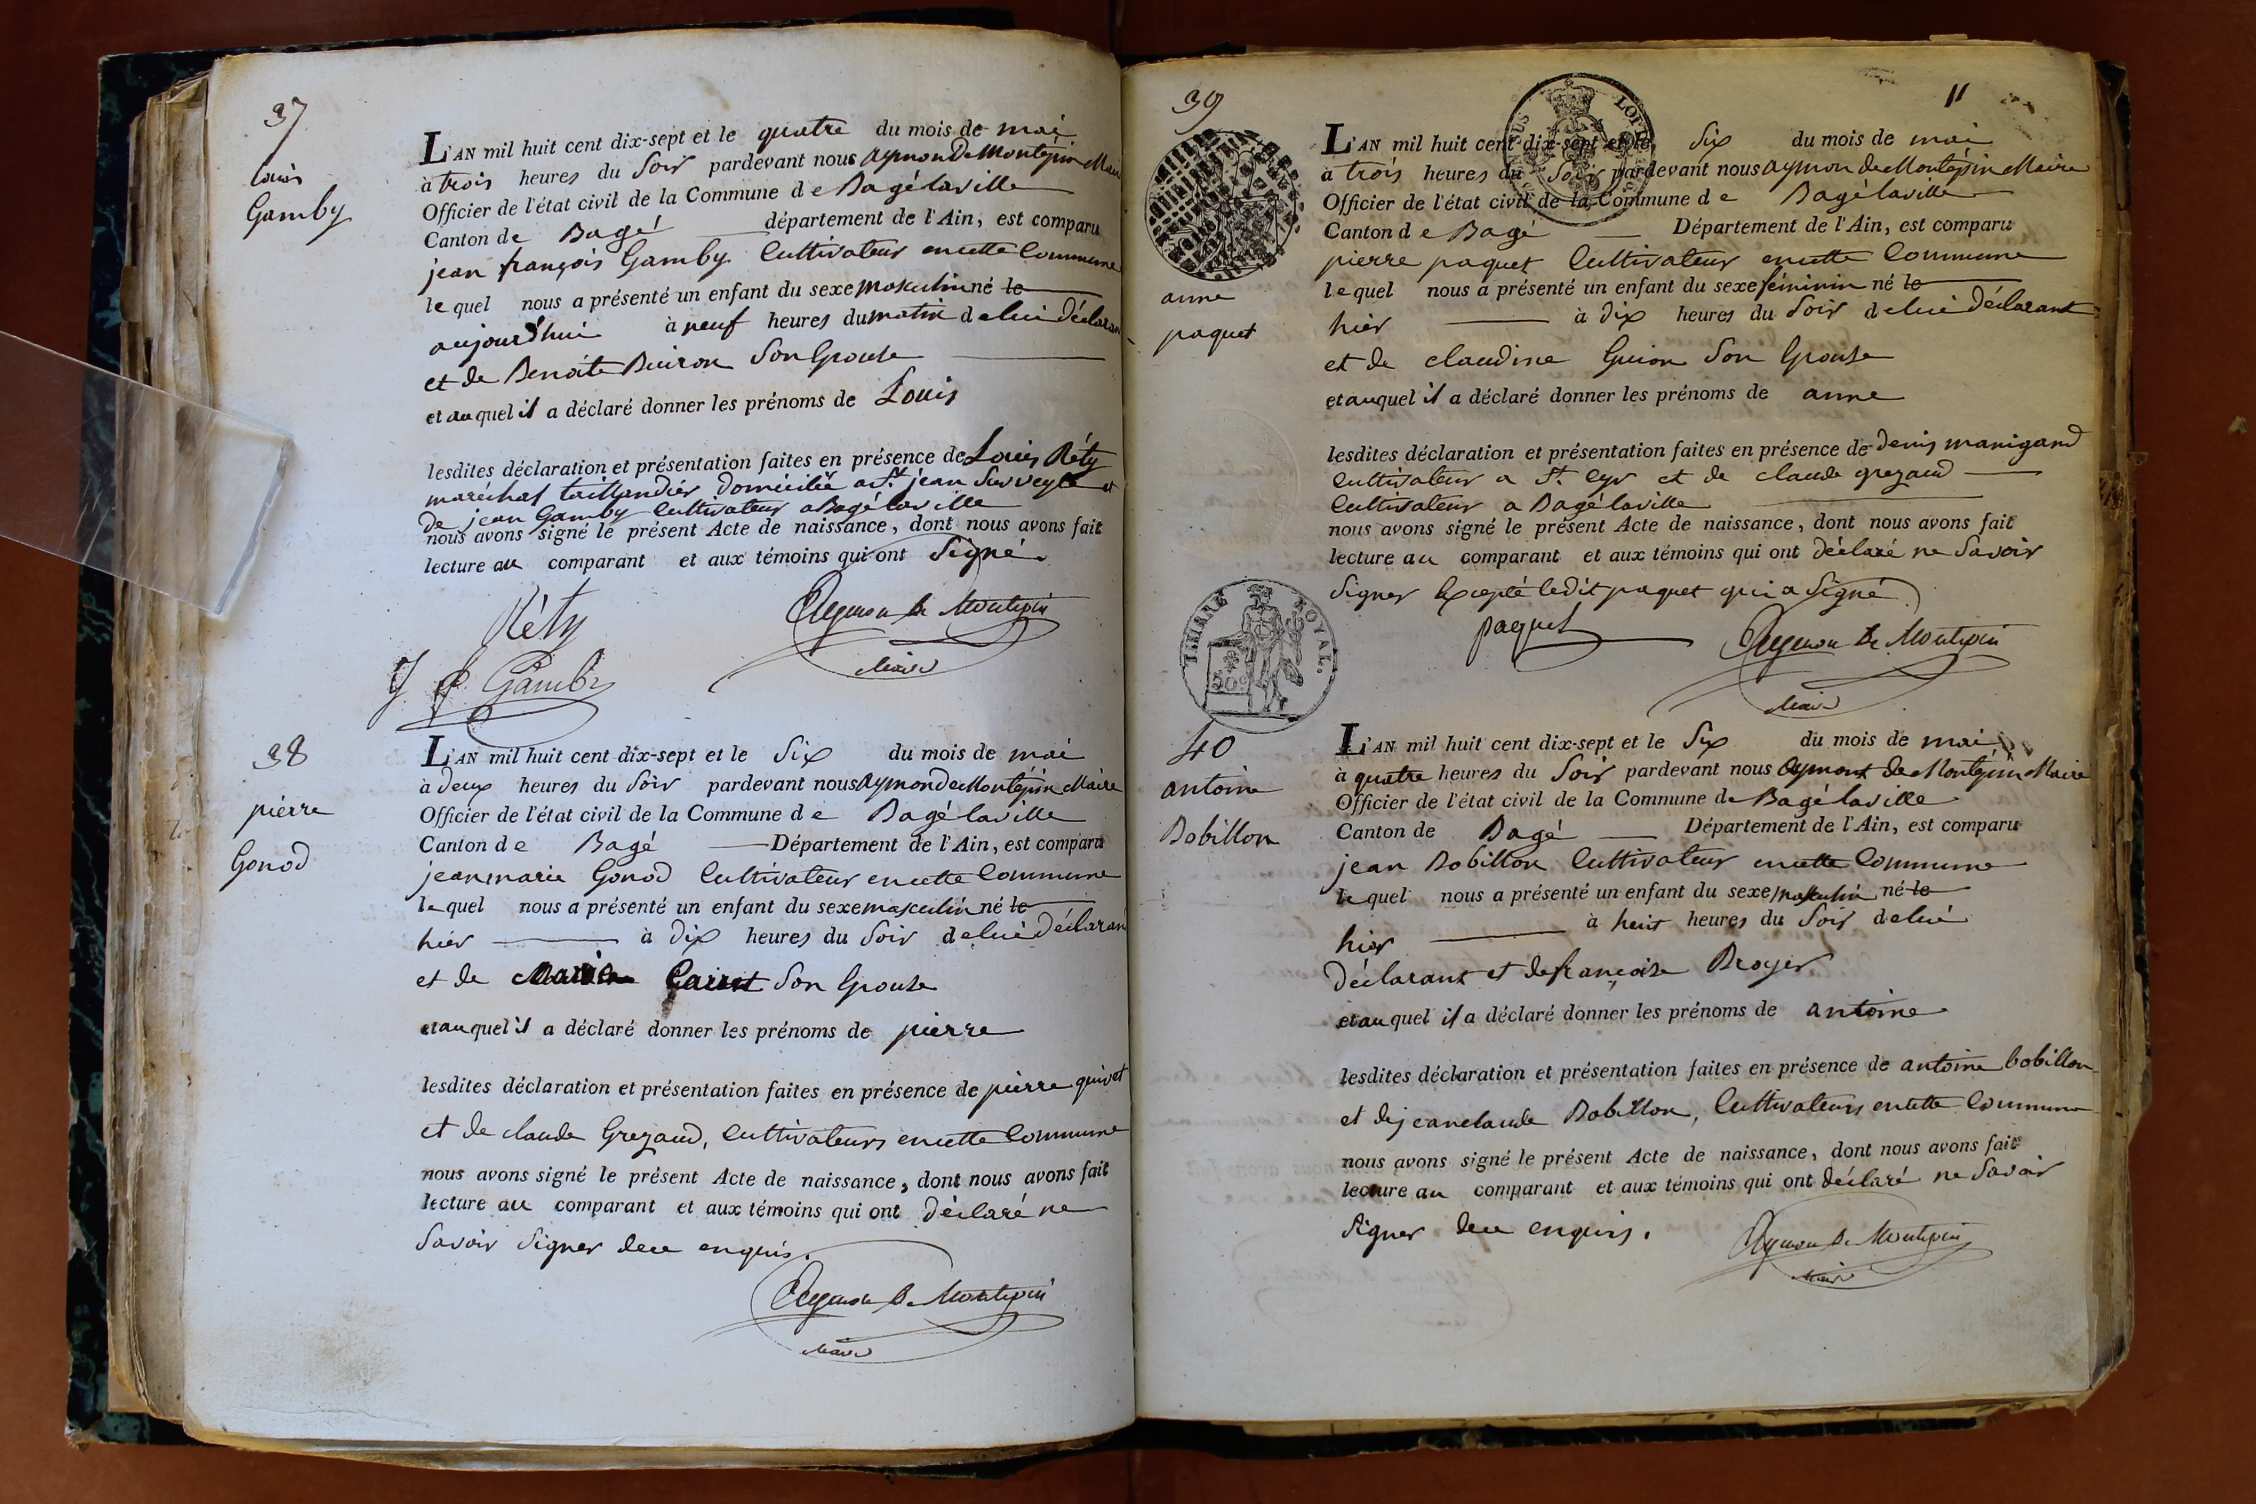 37
Louis
Gamby
L'AN mil huit cent dix-sept et le quatre du mois de mai
à trois heures du Soir pardevant nous Aymon De Montépin Maire
Officier de l'état civil de la Commune de Bagé laville
Canton de Bagé département de l'Ain, est comparu
jean françois Gamby Cultivateur en cette Commune
lequel nous a présenté un enfant du sexe masculin né le
aujourd'hui à neuf heures du matin de lui déclarant
et de Benoite Buiron Son Epouse
et auquel il a déclaré donner les prénoms de Louis
lesdites déclaration et présentation faites en présence de Louis Réty
maréchal taillandier domicilié a St. jean Surveyle et
de jean Gamby Cultivateur a Bagé laville
nous avons signé le présent Acte de naissance, dont nous avons fait
lecture au comparant et aux témoins qui ont Signé.
Réty
Aymon De Montepin
Maire
J f Gamby
38
pierre
Gonod
L'AN mil huit cent dix-sept et le Six du mois de mai
à deux heures du Soir pardevant nous Aymon De Montépin Maire
Officier de l'état civil de la Commune de Bagé laville
Canton de Bagé Département de l'Ain, est comparu
jean marie Gonod Cultivateur en cette Commune
lequel nous a présenté un enfant du sexe masculin né le
hier à dix heures du Soir de lui déclarant
et de Son Epouse
et auquel il a déclaré donner les prénoms de pierre
lesdites déclaration et présentation faites en présence de pierre quivet
et de claude Grezaud, Cultivateurs en cette Commune
nous avons signé le présent Acte de naissance, dont nous avons fait
lecture au comparant et aux témoins qui ont déclaré ne
Savoir Signer de ce enquis.
Aymon De Montepin
Maire
39
11
anne
paquet
L'AN mil huit cent dix-sept et le Six du mois de mai
à trois heures du Soir pardevant nous Aymon de Montépin Maire
Officier de l'état civil de la Commune de Bagé laville
Canton de Bagé Département de l'Ain, est comparu
pierre paquet Cultivateur en cette Commune
lequel nous a présenté un enfant du sexe féminin né le
hier à dix heures du Soir de lui déclarant
et de claudine Guion Son Epouse
et auquel il a déclaré donner les prénoms de anne
lesdites déclaration et présentation faites en présence de denis manigand
Cultivateur a St. Cyr et de claude grezaud
Cultivateur a Bagé laville
nous avons signé le présent Acte de naissance, dont nous avons fait
lecture au comparant et aux témoins qui ont déclaré ne Savoir
Signer Excepté ledit paquet qui a Signé
TIMBRE ROYAL.
50c
paquet
Aymon De Montepin
Maire
40
antoine
Bobillon
L'AN mil huit cent dix-sept et le Six du mois de mai
à quatre heures du Soir pardevant nous Aymont de Montépin Maire
Officier de l'état civil de la Commune de Bagé laville
Canton de Bagé Département de l'Ain, est comparu
jean Bobillon Cultivateur en cette Commune
lequel nous a présenté un enfant du sexe masculin né le
hier à huit heures du Soir de lui
déclarant et de françoise Broyer
et auquel il a déclaré donner les prénoms de antoine
lesdites déclaration et présentation faites en présence de antoine bobillon
et de jean claude Bobillon, Cultivateurs en cette Commune
nous avons signé le présent Acte de naissance, dont nous avons fait
lecture au comparant et aux témoins qui ont déclaré ne Savoir
Signer de ce enquis.
Aymon De Montepin
Maire